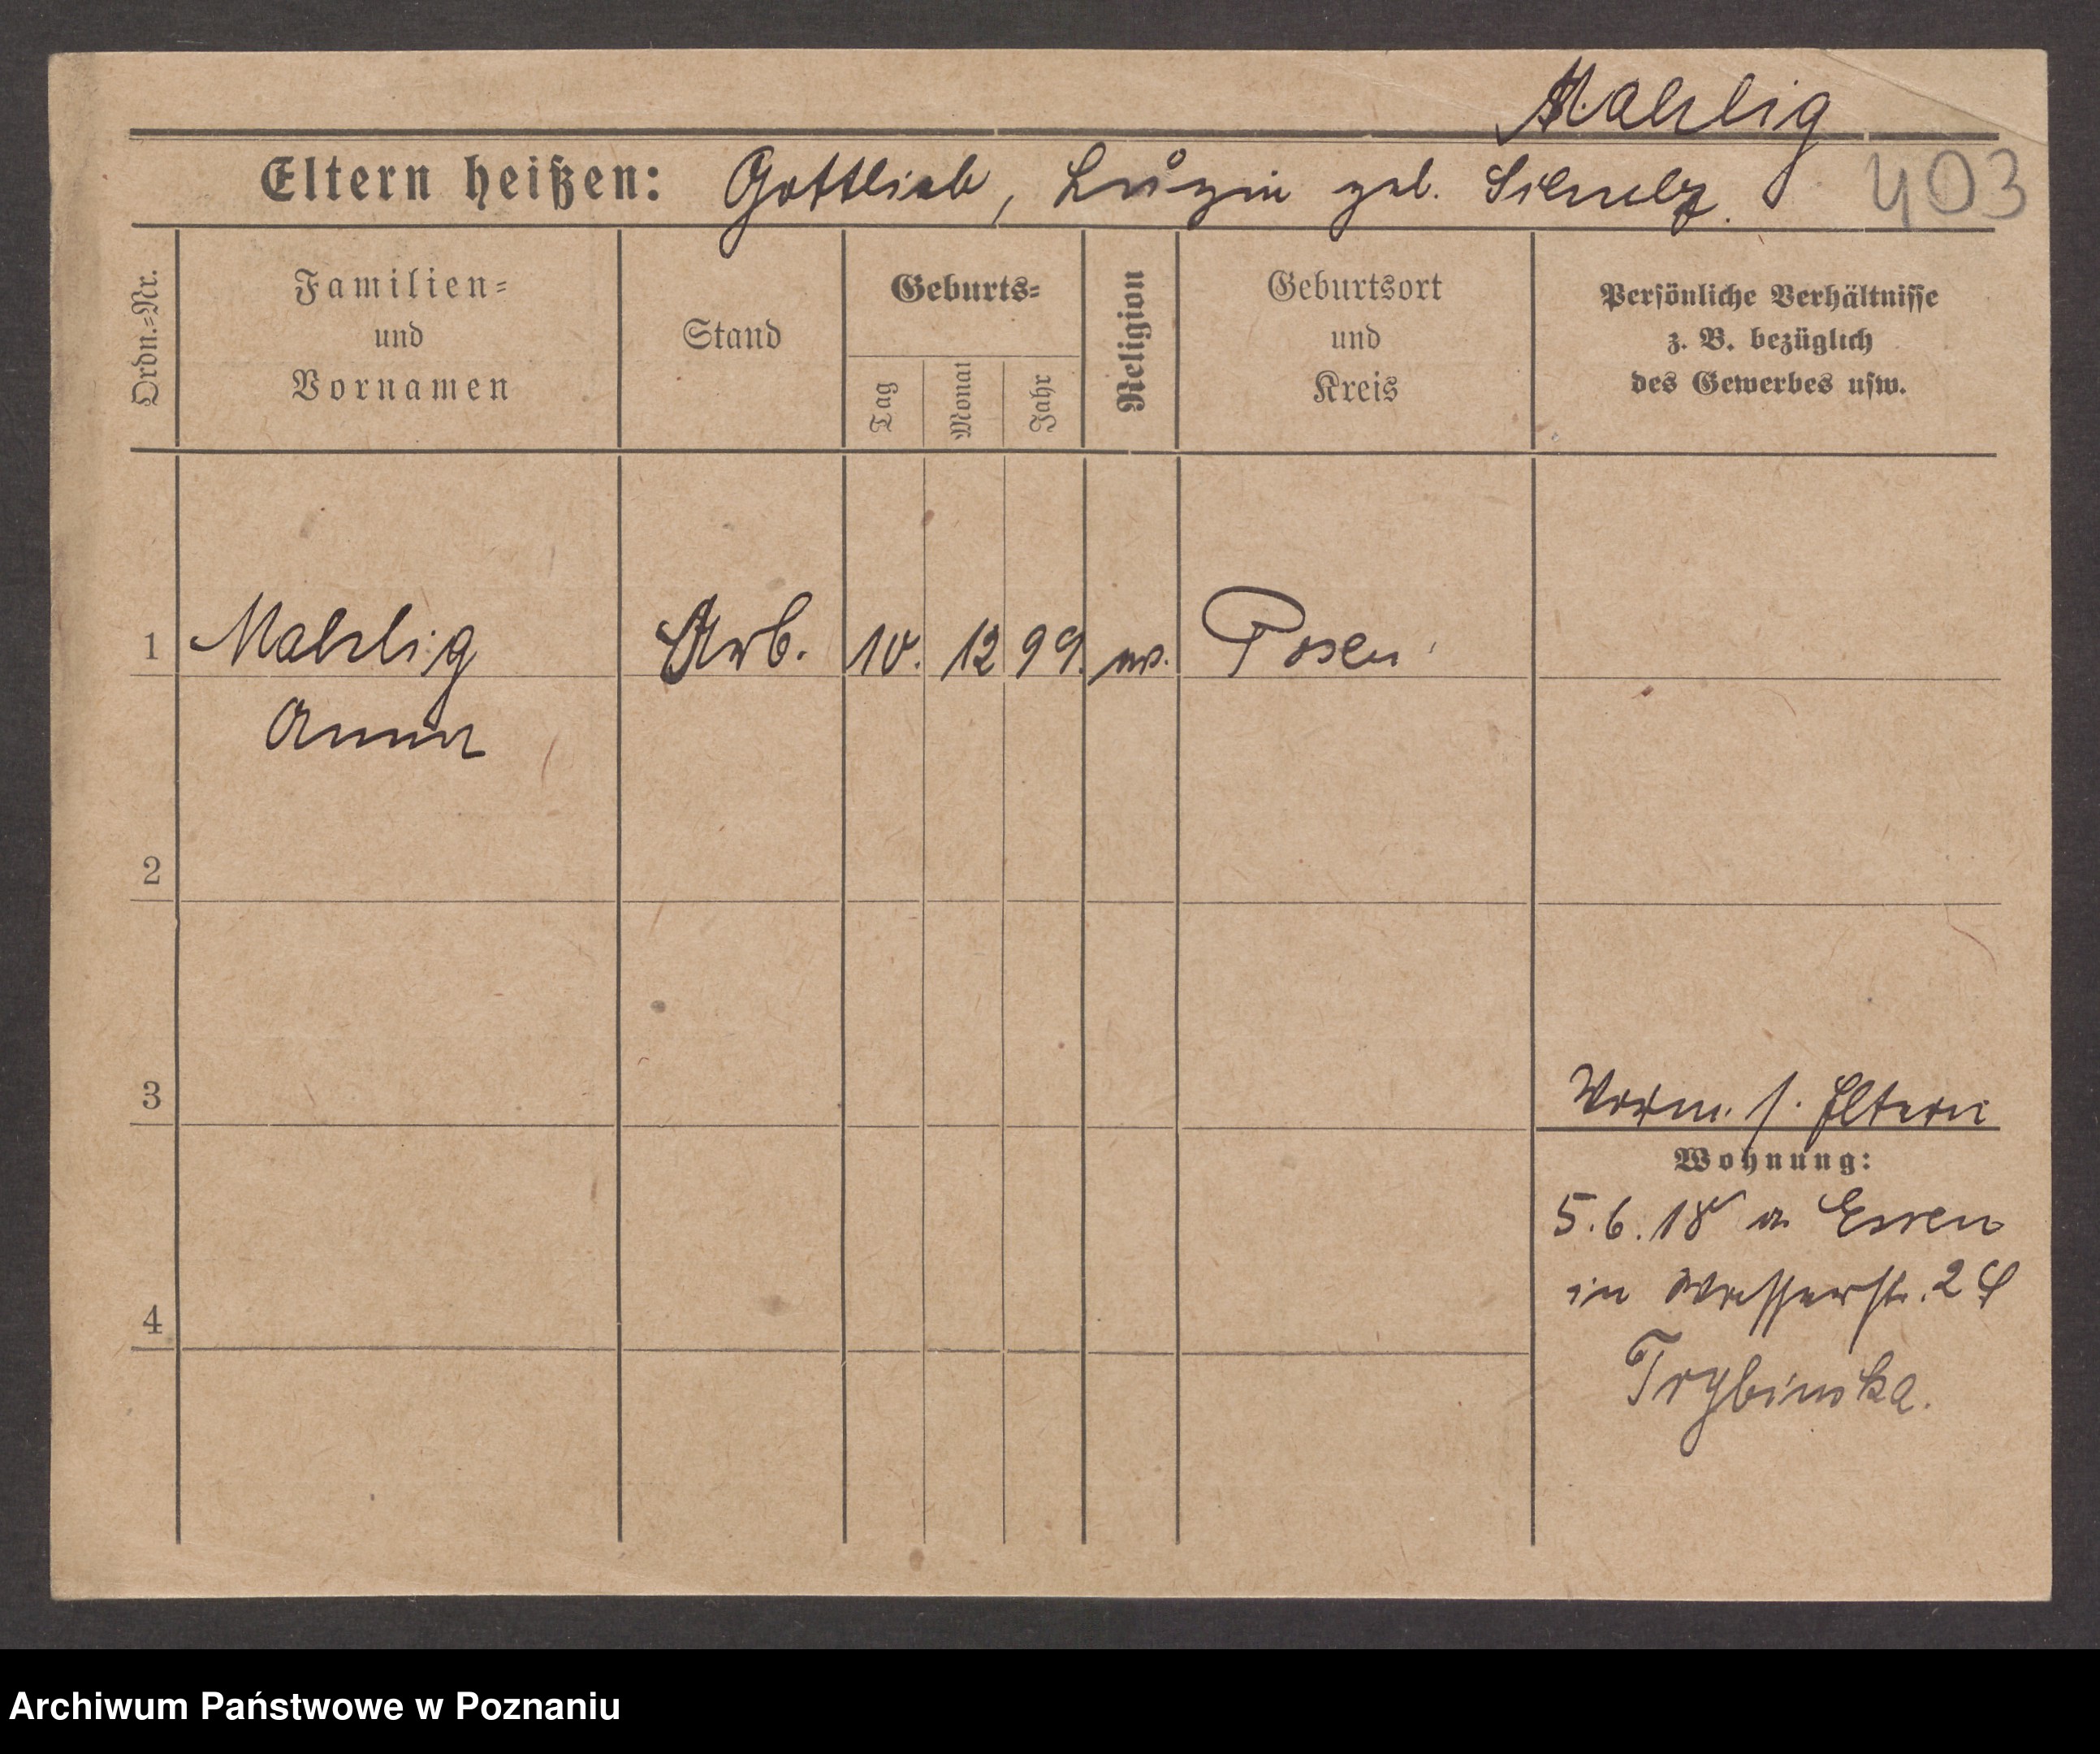 Mahlig
Eltern heißen: Gottlieb, Luzie geb. Schulz.
403
Ordn.=Nr.
Familien=
und
Vornamen
Stand
Geburts=
Tag
Monat
Jahr
Religion
Geburtsort
und
Kreis
Persönliche Verhältnisse
z. B. bezüglich
des Gewerbes usw.
1 Mahlig Arb. 10. 12 99. ev. Posen
Anna
2
3
Vorm. s. Eltern
Wohnung:
5.6.18 a. Essen
in Wasserstr. 24
4
Trybinska.
Archiwum Państwowe w Poznaniu